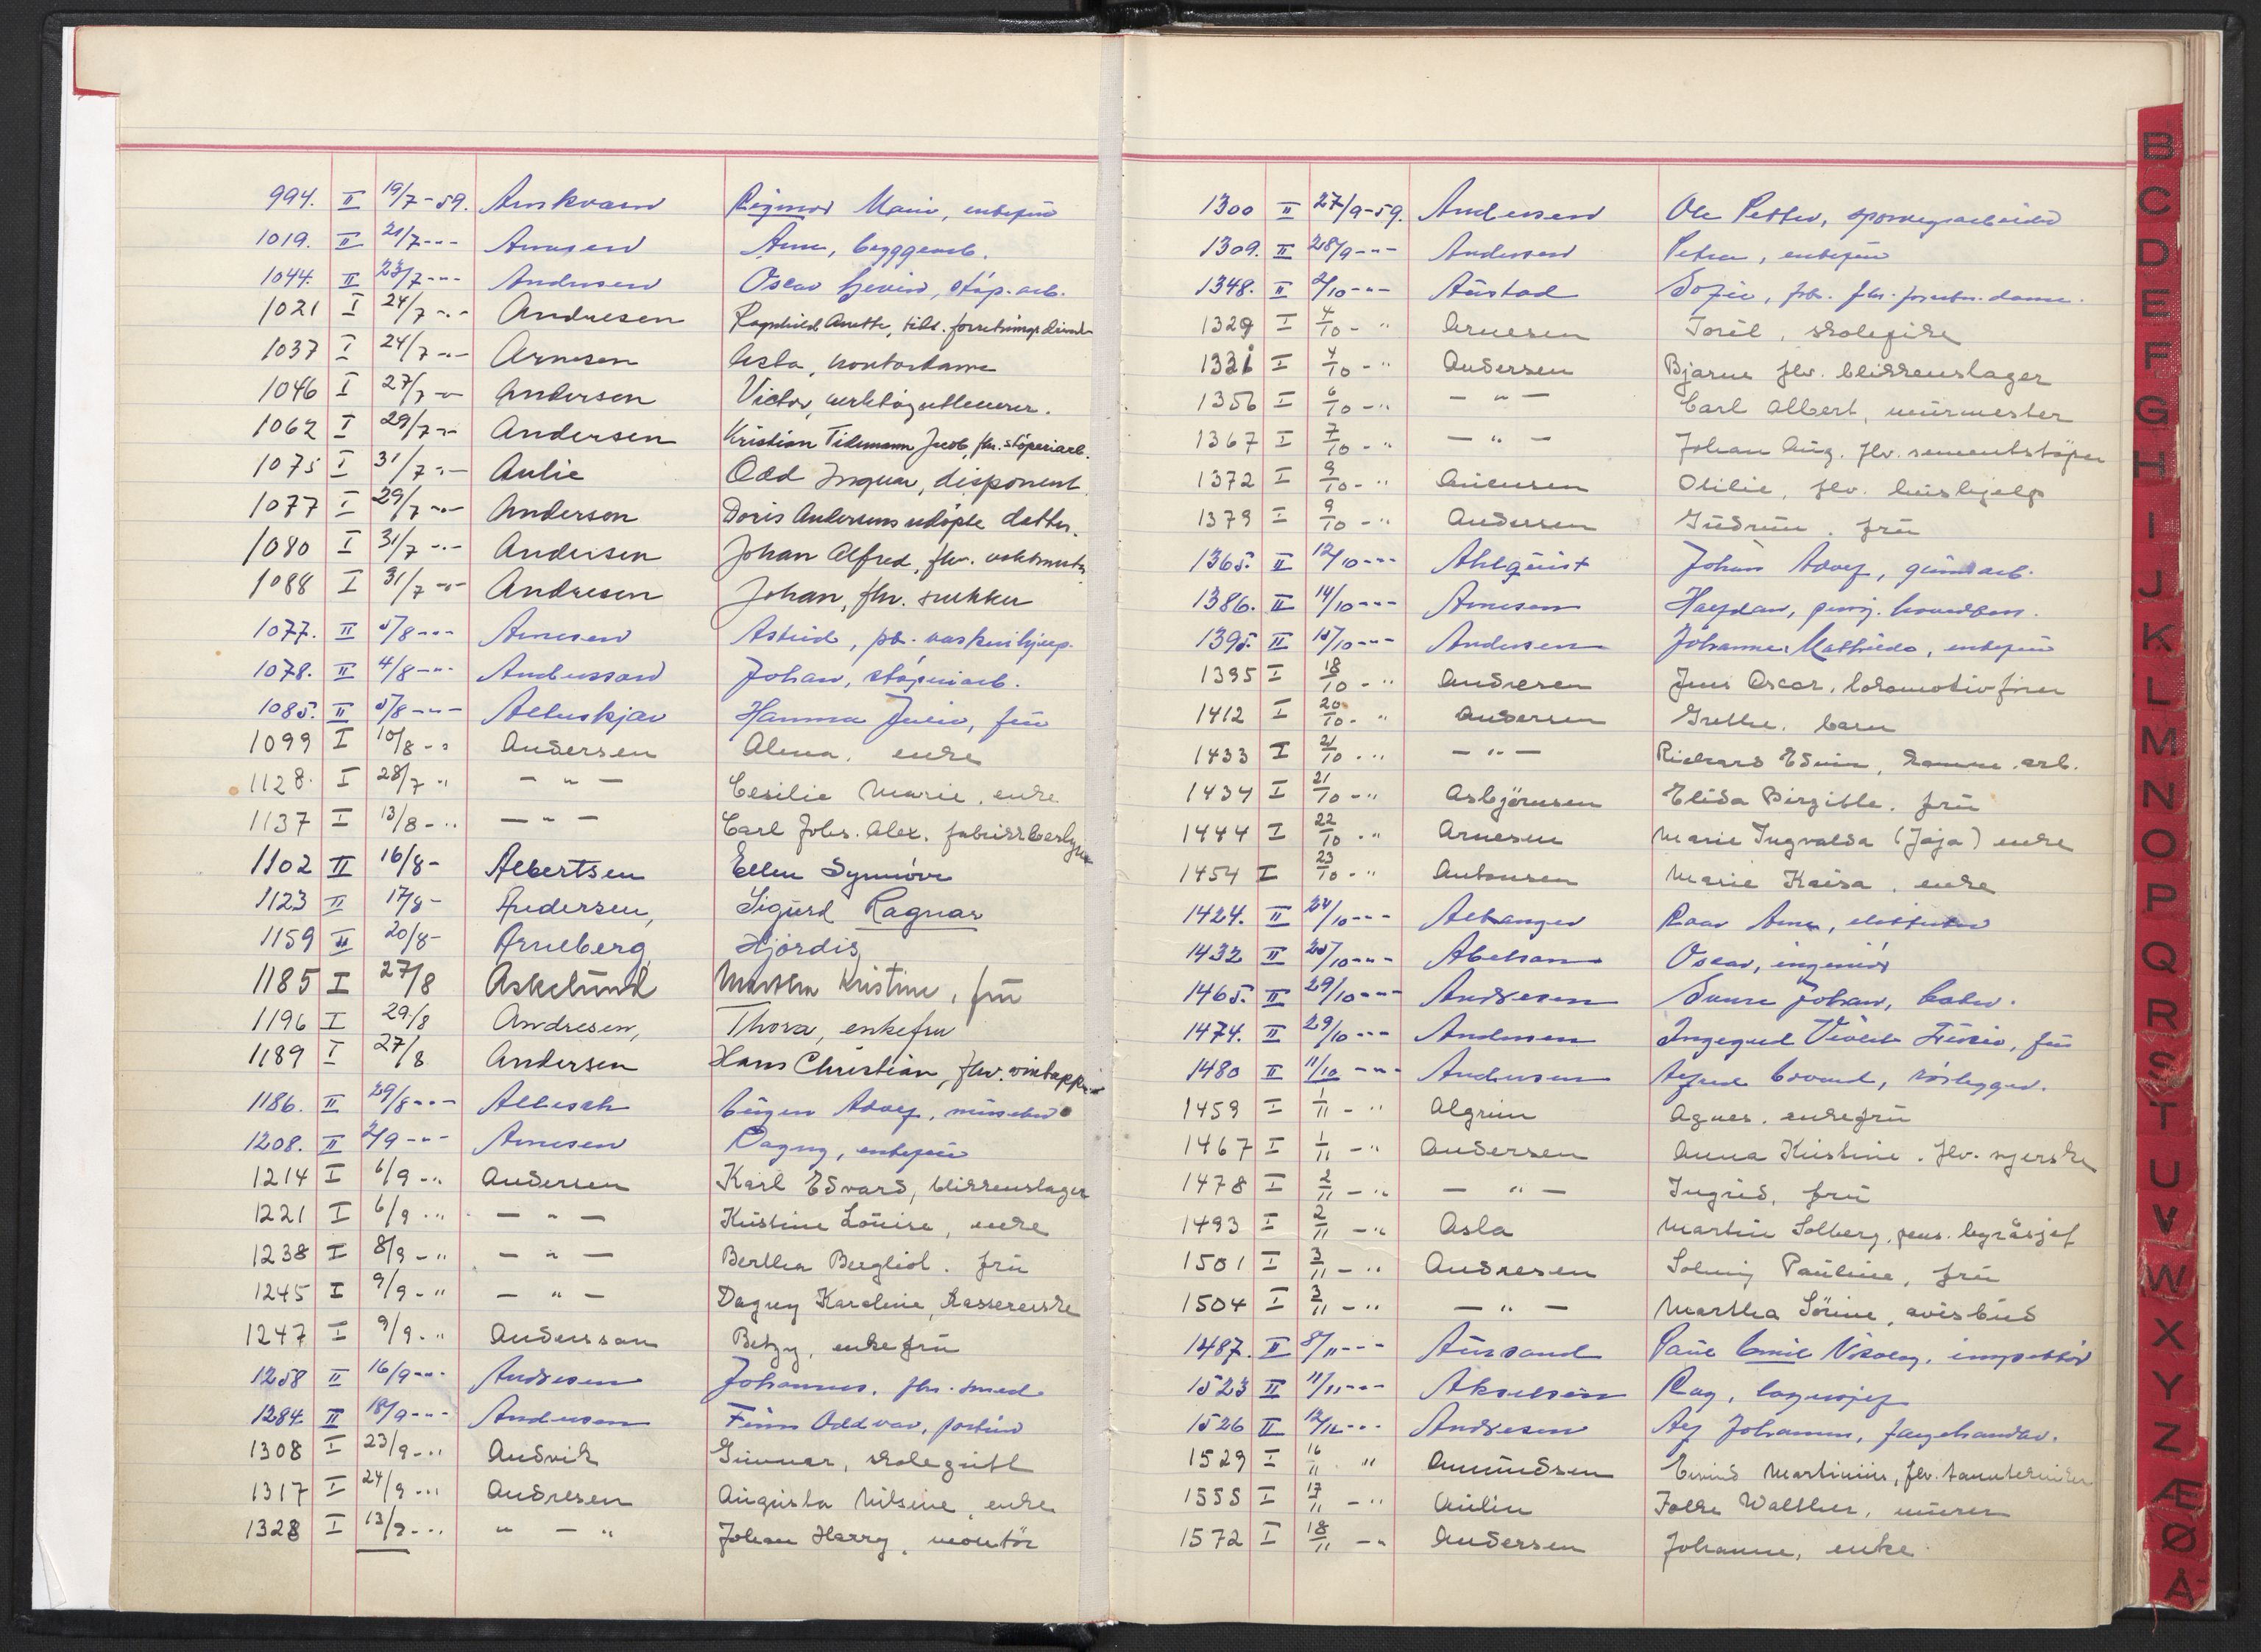 994. II 19/7-59. Arnkværn Rigmor Marie, enkefrü
1019. II 21/7--- Arnesen Arne, byggearb.
1044. II 23/7--- Andersen Oscar Gerin, støp.arb.
1021 I 24/7 -.- Andresen Ragnhild Anette, tidl. forretningsdrivende
1037 I 24/7 -.- Arnesen Asta, kontordame
1046 I 27/7 -.- Andersen Victor, verktøyutleverer.
1062 I 29/7 -.- Andersen Kristian Tidemann Jacob, fhv. støperiarb.
1075 I 31/7 -.- Aulie Odd Ingvar, disponent
1077 I 29/7 -.- Anderson Doris Andersons udøpte datter.
1080 I 31/7 -.- Andersen Johan Alfred, fhv. vaktmester
1088 I 31/7 -.- Andresen Johan, fhv. snekker
1077. II 5/8--- Arnesen Astrid, pb. vaskerihjelp.
1078. II 4/8--- Andersson Johan, støperiarb.
1085. II 5/8--- Alterskjær Hanna Julie, frü
1099 I 10/8 - " Andersen Alma, enke
1128. I 28/7 " — " — Cesilie Marie, enke
1137 I 13/8 - " — " — Carl Johs. Alex. fabrikkbestyrer
1102 II 16/8- Albertsen Ellen Synnøve
1123 II 17/8- Andersen, Sigurd Ragnar
1159 II 20/8- Arneberg, Hjørdis
1185 I 27/8 Askelund Martha Kristine, frü
1196 I 29/8 Andresen, Thora, enkefru
1189 I 27/8 Andersen Hans Christian, fhv. vintapper
1186. II 29/8--- Albesch Eugen Adolf, müsiker
1208. II 2/9--- Arnesen Dagny, enkefrü
1214 I 6/9 - " Andersen Karl Edvard, blikkenslager
1221 I 6/9 - " — " — Kristine Louise, enke
1238 I 8/9 - " — " — Bertha Bergliot. frü
1245 I 9/9 - " — " — Dagny Karoline, kassererske
1247 I 9/9 - " Andersson Betzy, enkefrü
1258 II 16/9--- Andresen Johannes, fhv. smed
1284. II 18/9--- Andersen Finn Oddvar, portier
1308 I 23/9 - " Andvik Günnar, skolegütt
1317 I 24/9 - " Andresen Augusta Nilsine, enke
1328 I 13/9 - " " — " Johan Harry, montør
1300 II 27/9-59. Andersen Ole Petter, sporveisarbeider
1309. II 28/9--- Andersen Petra, enkefrü
1348. II 2/10--- Austad Sofie, fhv. forretn.dame.
1329 I 4/10 - " Arnesen Toril, skolepike
1331 I 4/10 - " Andersen Bjarne fhv. blikkenslager
1356 I 6/10 - " — " — Carl Albert, mürmester
1367 I 7/10 - " — " — Johan Aug. fhv. sementstøper
1372 I 9/10 - " Amundsen Otilie, fhv. hüshjelp
1379 I 9/10 - " Andersen Güdrün, frü
1365. II 12/10--- Ahlquist Johan Adolf, gümmiarb.
1386. II 14/10--- Arnesen Halfdan, pensj.
1395. II 15/10--- Andersen Johanne Mathilde, enkefrü
1395 I 18/10 - " Andresen Jens Oscar, lokomotivfører
1412 I 20/10 - " Andersen Grethe, barn
1433 I 21/10 - " — " — Richard Edvin, kommunearb.
1434 I 21/10 - " Asbjørnsen Elida Birgitte, frü
1444 I 22/10 - " Arnesen Marie Ingvalda (Jaja) enke
1454 I 23/10 - " Antonsen Marie Kaisa, enke
1424. II 24/10--- Altanger Roar Arne, elektriker
1432 II 25/10--- Abelson Oscar, ingeniør
1465. II 29/10--- Andresen Johan
1474. II 29/10--- Andersen Ingegerd Viola, frü
1480 II 11/10 --- Andersen Erland Edvard, rørlegger.
1459 I 1/11 - " Algrim Agnes, enkefrü
1467 I 1/11 - " Andersen Anna Kristine, fhv. syerske
1478 I 2/11 - " — " — Ingrid, frü
1493 I 2/11 - " Asla Martin Solberg, pens. byråsjef
1501 I 3/11 - " Andresen Solveig Pauline, frü
1504 I 3/11 - " — " — Martha Sörine, avisbüd
1487. II 8/11--- Aursand Paul Emil Nikolay, inspektør
1523 II 11/11--- Akselsen Dag, lagersjef
1526 II 12/11--- Andresen Alf Johannes, fargehandler.
1529 I 16/11 " Amundsen Eivind Martinius, fhv. tanntekniker
1555 I 17/11 - " Aulin Folke Walther, mürer
1572 I 18/11 - " Andersen Johanne, enke
B
C
D
E
F
G
H
I
J
K
L
M
N
O
P
Q
R
S
T
U
V
W
X
Y
Z
Æ
Ø
Å